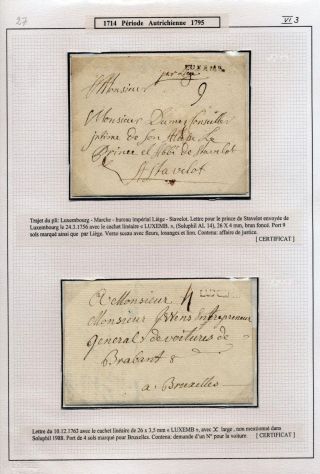 27
1714 Période Autrichienne 1795
VI 3
LUXEMB.
Monsieur
par Liege
9
Monsieur Dumez Conseiller
intime de son Altesse Le
Prince et Abbé de Stavelot
A Stavelot
Trajet du pli: Luxembourg - Marche - bureau impérial Liège - Stavelot. Lettre pour le prince de Stavelot envoyée de
Luxembourg le 24.3.1756 avec le cachet linéaire « LUXEMB. », (Soluphil AL 14), 26 X 4 mm, brun foncé. Port 9
sols marqué ainsi que par Liège. Verso sceau avec fleurs, losanges et lion. Contenu: affaire de justice.
[ CERTIFICAT ]
A Monsieur 4 LUXEMB
Monsieur Entrepreneur
generals de voitures de
Brabant &
a Bruxelles
Lettre du 10.12.1763 avec le cachet linéaire de 26 x 3,5 mm « LUXEMB », avec X large , non mentionné dans
Soluphil 1988. Port de 4 sols marqué pour Bruxelles. Contenu: demande d'un N° pour la voiture
[ CERTIFICAT ]